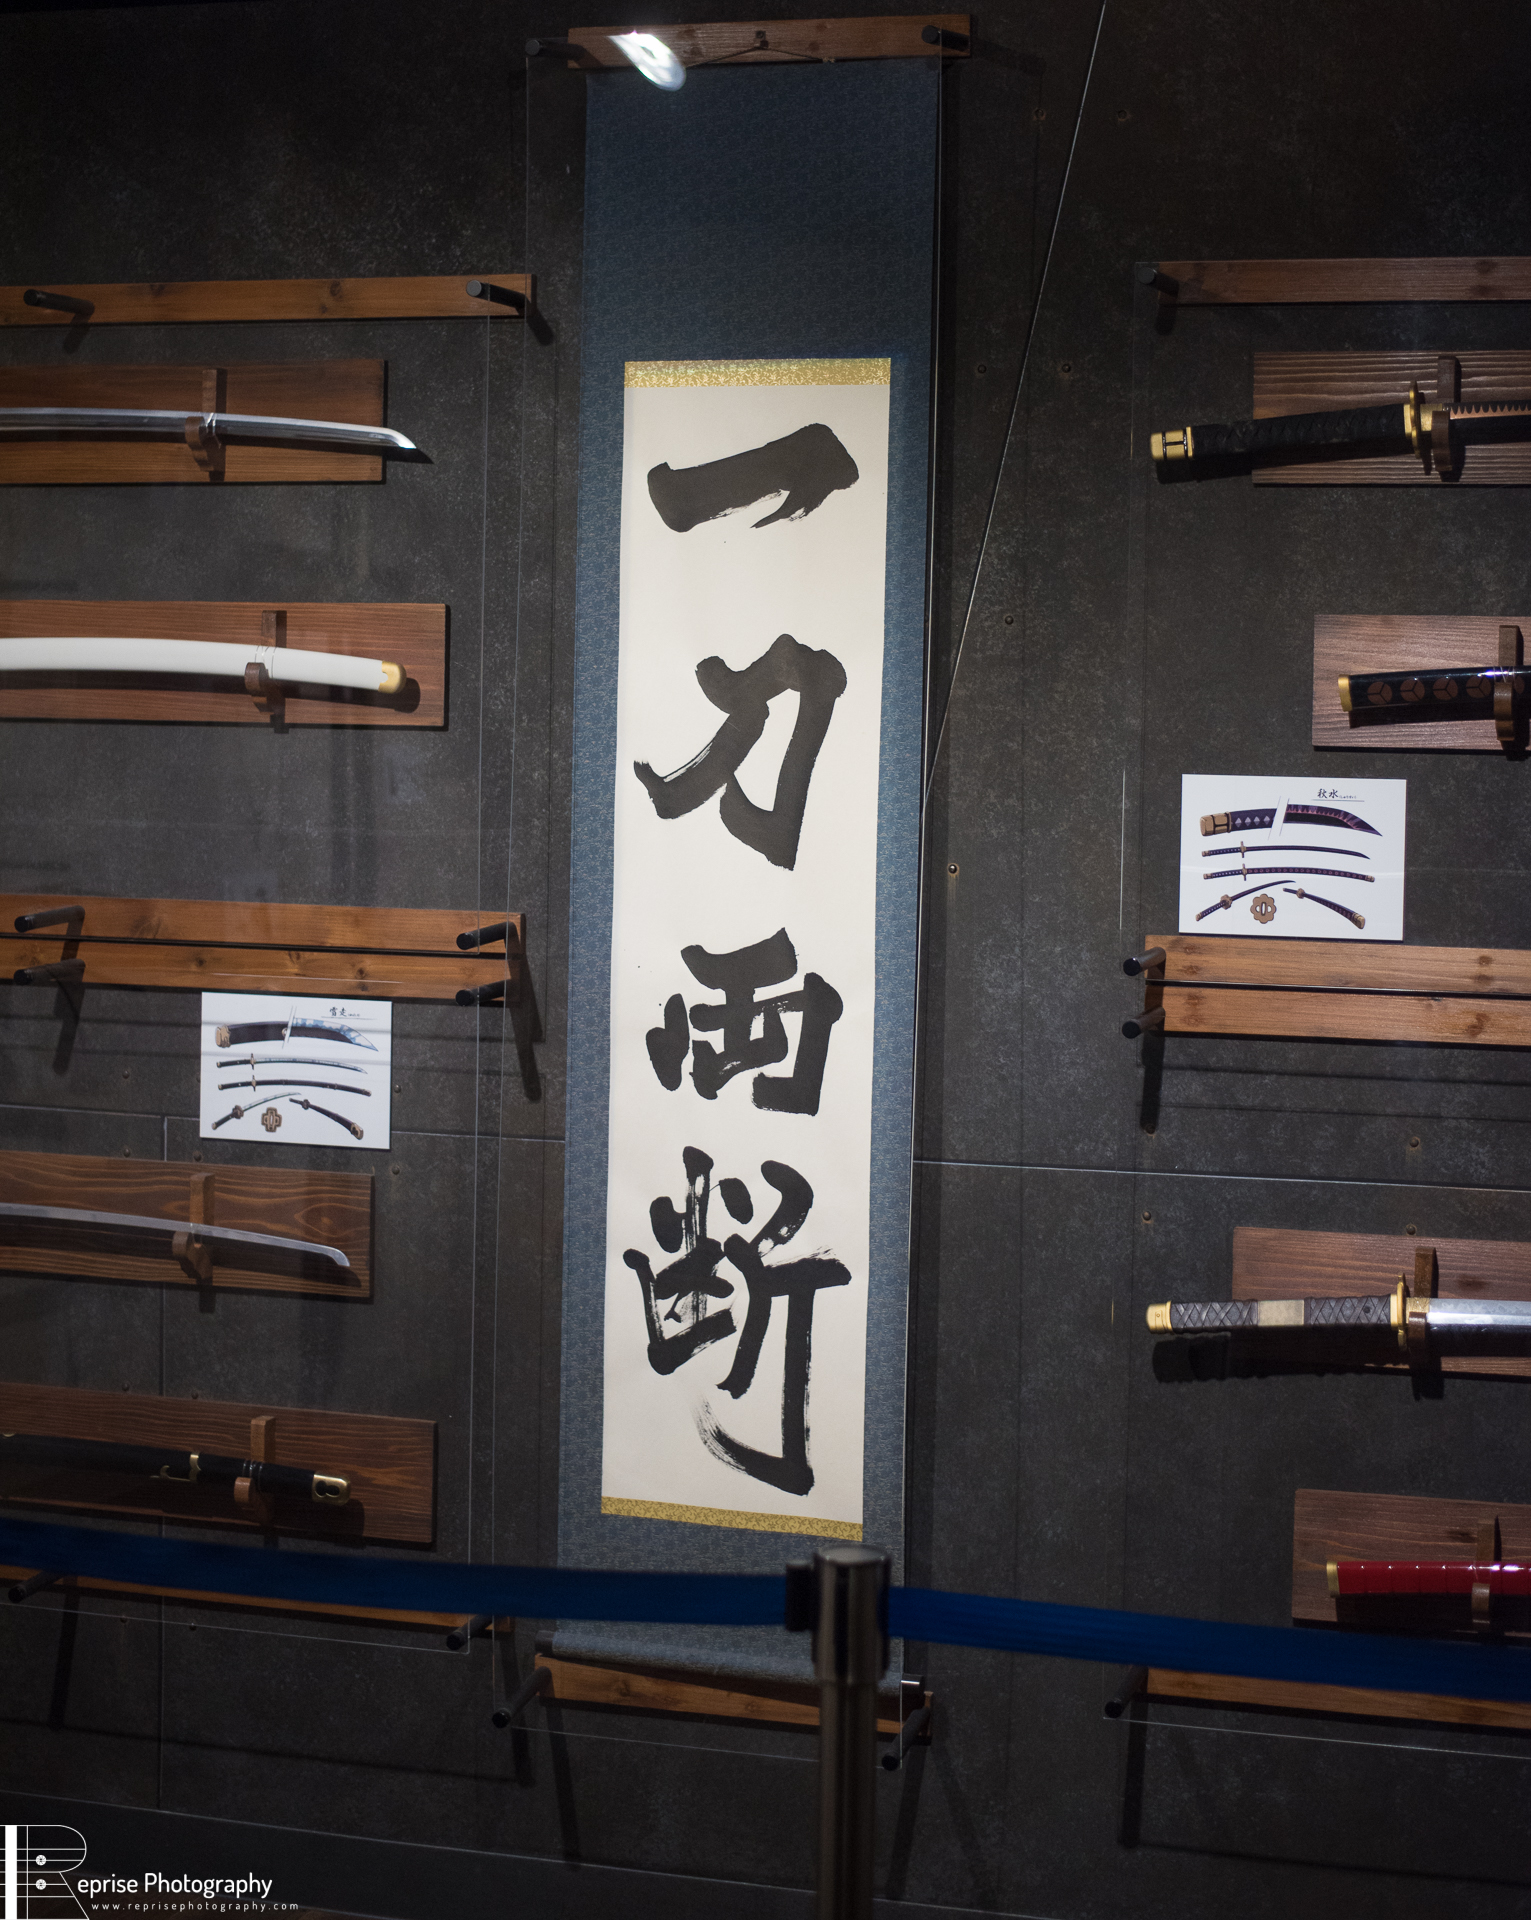 一刀両断
秋水
雷走
Reprise Photography
www.reprisephotography.com